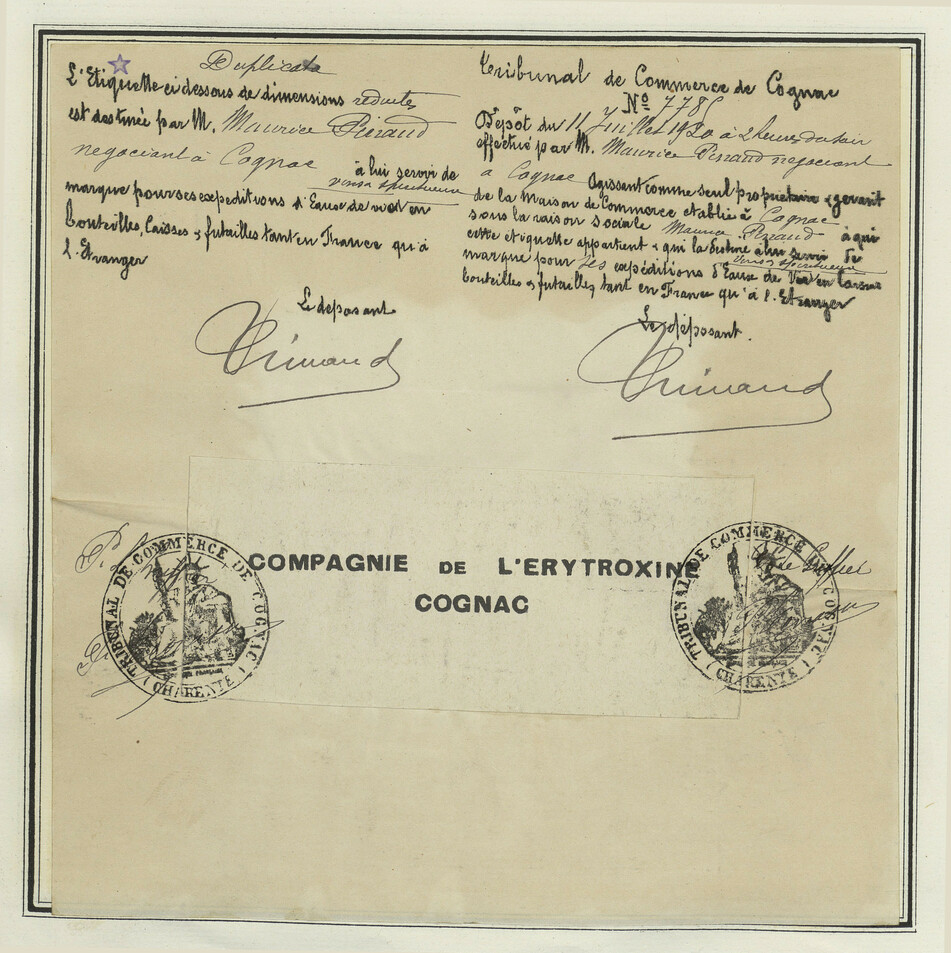 Duplicata
L'Etiquette ci dessous de dimensions réduites
est destinée par M. Maurice Pinaud
négociant à Cognac à lui servir de
marque pour ses expéditions d'Eaux de vie et en
vins & spiritueux
bouteilles, Caisses & futailles tant en France qu'à
l'Etranger
Le déposant
Pinaud
Tribunal de Commerce de Cognac
N° 778
Dépôt du 11 Juillet 1920 à 2 heures du soir
effectué par M. Maurice Pinaud négociant
à Cognac Agissant comme seul propriétaire & gérant
de la Maison de Commerce établie à Cognac
sous la raison sociale Maurice Pinaud à qui
cette étiquette appartient & qui la destine à lui servir de
vins & spiritueux
marque pour ses expéditions d'Eaux de Vie en Caisses
bouteilles & futailles, tant en France qu'à l'Etranger
Le déposant.
Pinaud
COMPAGNIE DE L'ERYTROXINE
COGNAC
TRIBUNAL DE COMMERCE DE COGNAC (CHARENTE)
TRIBUNAL DE COMMERCE DE COGNAC (CHARENTE)